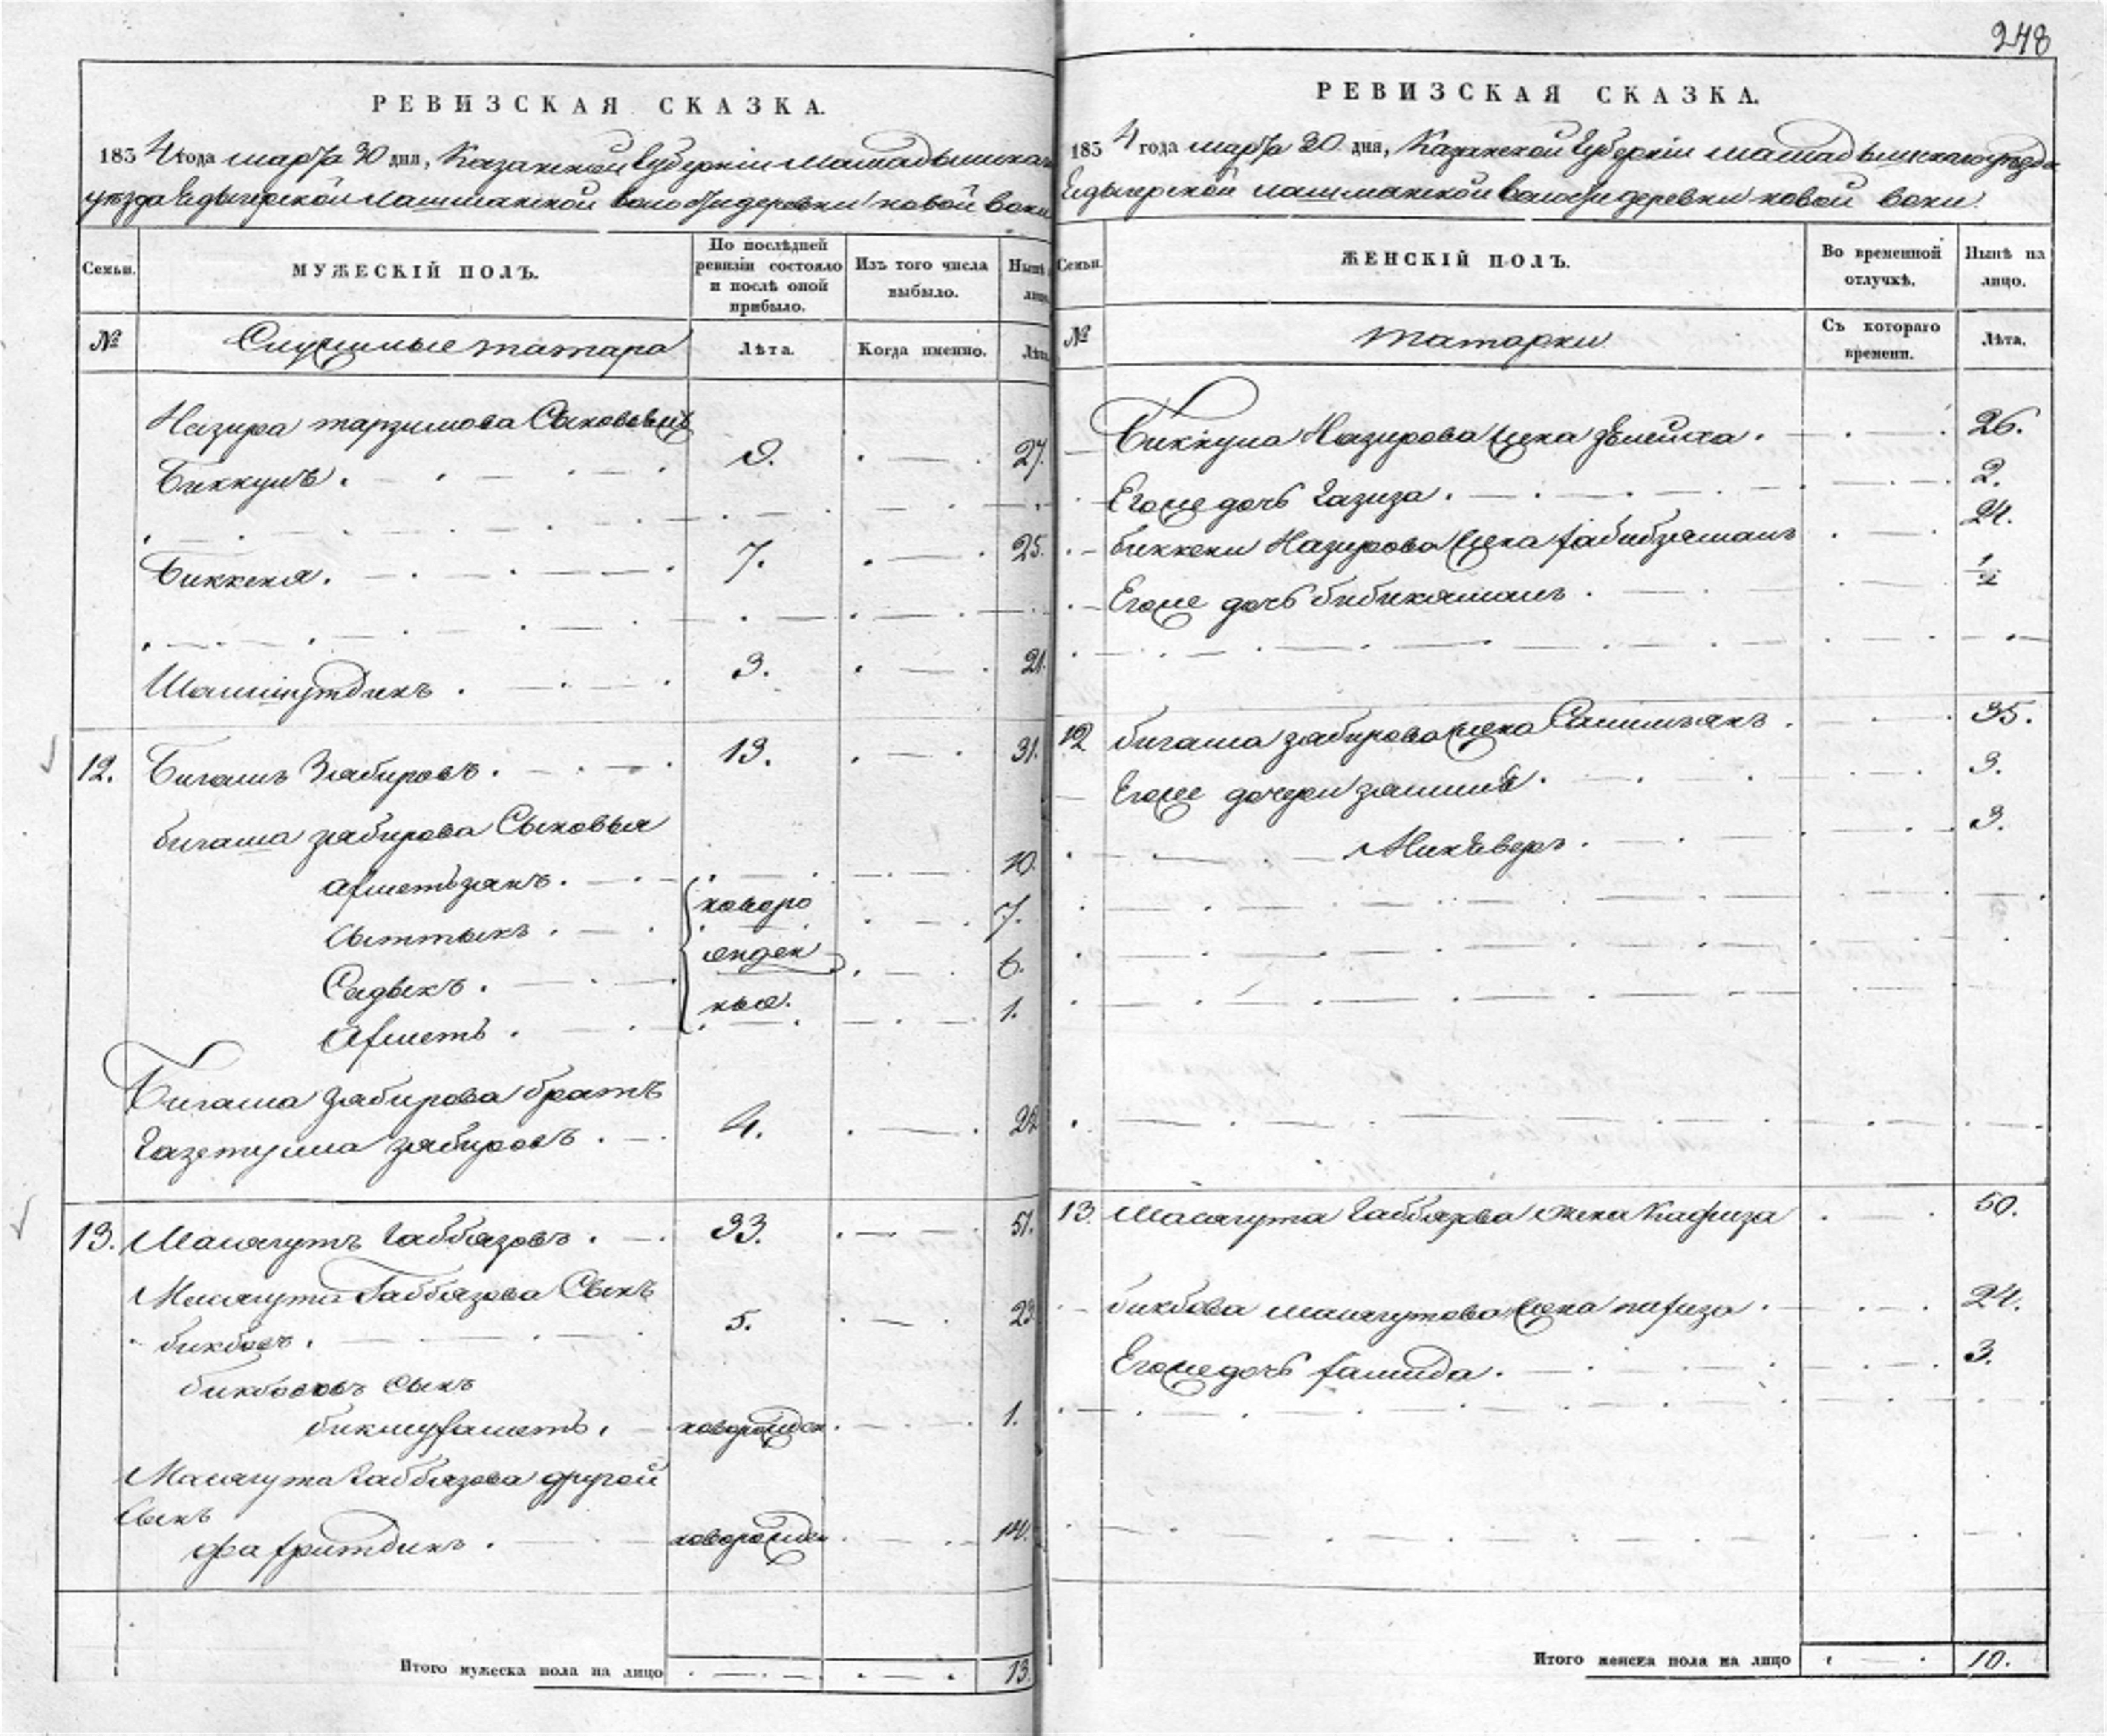 248
РЕВИЗСКАЯ СКАЗКА.
1834 года марта 30 дня, Казанской Губернiи Мамадышскаго
уѣзда Едыгерской лашманской волости деревни новой воки
Семьи.
МУЖЕСКIЙ ПОЛЪ.
По послѣдней ревизiи состояло и послѣ оной прибыло.
Изъ того числа выбыло.
Нынѣ лицо.
№
Служилые татара
Лѣта.
Когда именно.
Лѣта
Назира тарзимова Сыновья
Биккулъ. 9. 27.
Биккеня. 7. 25.
Шамшутдинъ. 3. 21.
12. Бигашъ Зябировъ. 13. 31.
бигаша зябирова Сыновья
ахметьзянъ. 10.
Сыттыкъ. 7.
Садыкъ. 6.
Ахметь. 1.
новоро
жден
ные.
Бигаша Зябирова братъ
Газетулла зябировъ. 4. 22
13. Масягутъ Габбязовъ. 33. 51.
Масягута Габбязова Сынъ
бикбовъ. 5. 23
бикбововъ Сынъ
бикмухаметь. новорожден. 1.
Масягута Габбязова другой
Сынъ
фахритдинъ. новорожден 14.
Итого мужеска пола на лицо 13.
РЕВИЗСКАЯ СКАЗКА.
1834 года марта 30 дня, Казанской Губернiи мамадышскаго уѣзда
Едыгерской лашманской волости деревни новой воки.
Семьи.
ЖЕНСКIЙ ПОЛЪ.
Во временной отлучкѣ.
Нынѣ на лицо.
№
татарки
Съ котораго времени.
Лѣта.
Биккула Назирова жена 26.
Егоже дочь Газиза. 2.
биккени Назирова жена хабибзямалъ 24.
Егоже дочь бибикямалъ. 1/2
12 бигаша зябирова жена 35.
Егоже дочери 3.
3.
13. Масягута Габбязова жена Кафиза 50.
бикбова масягутова жена нафиза. 24.
Егоже дочь хамида. 3.
Итого женска пола на лицо 10.